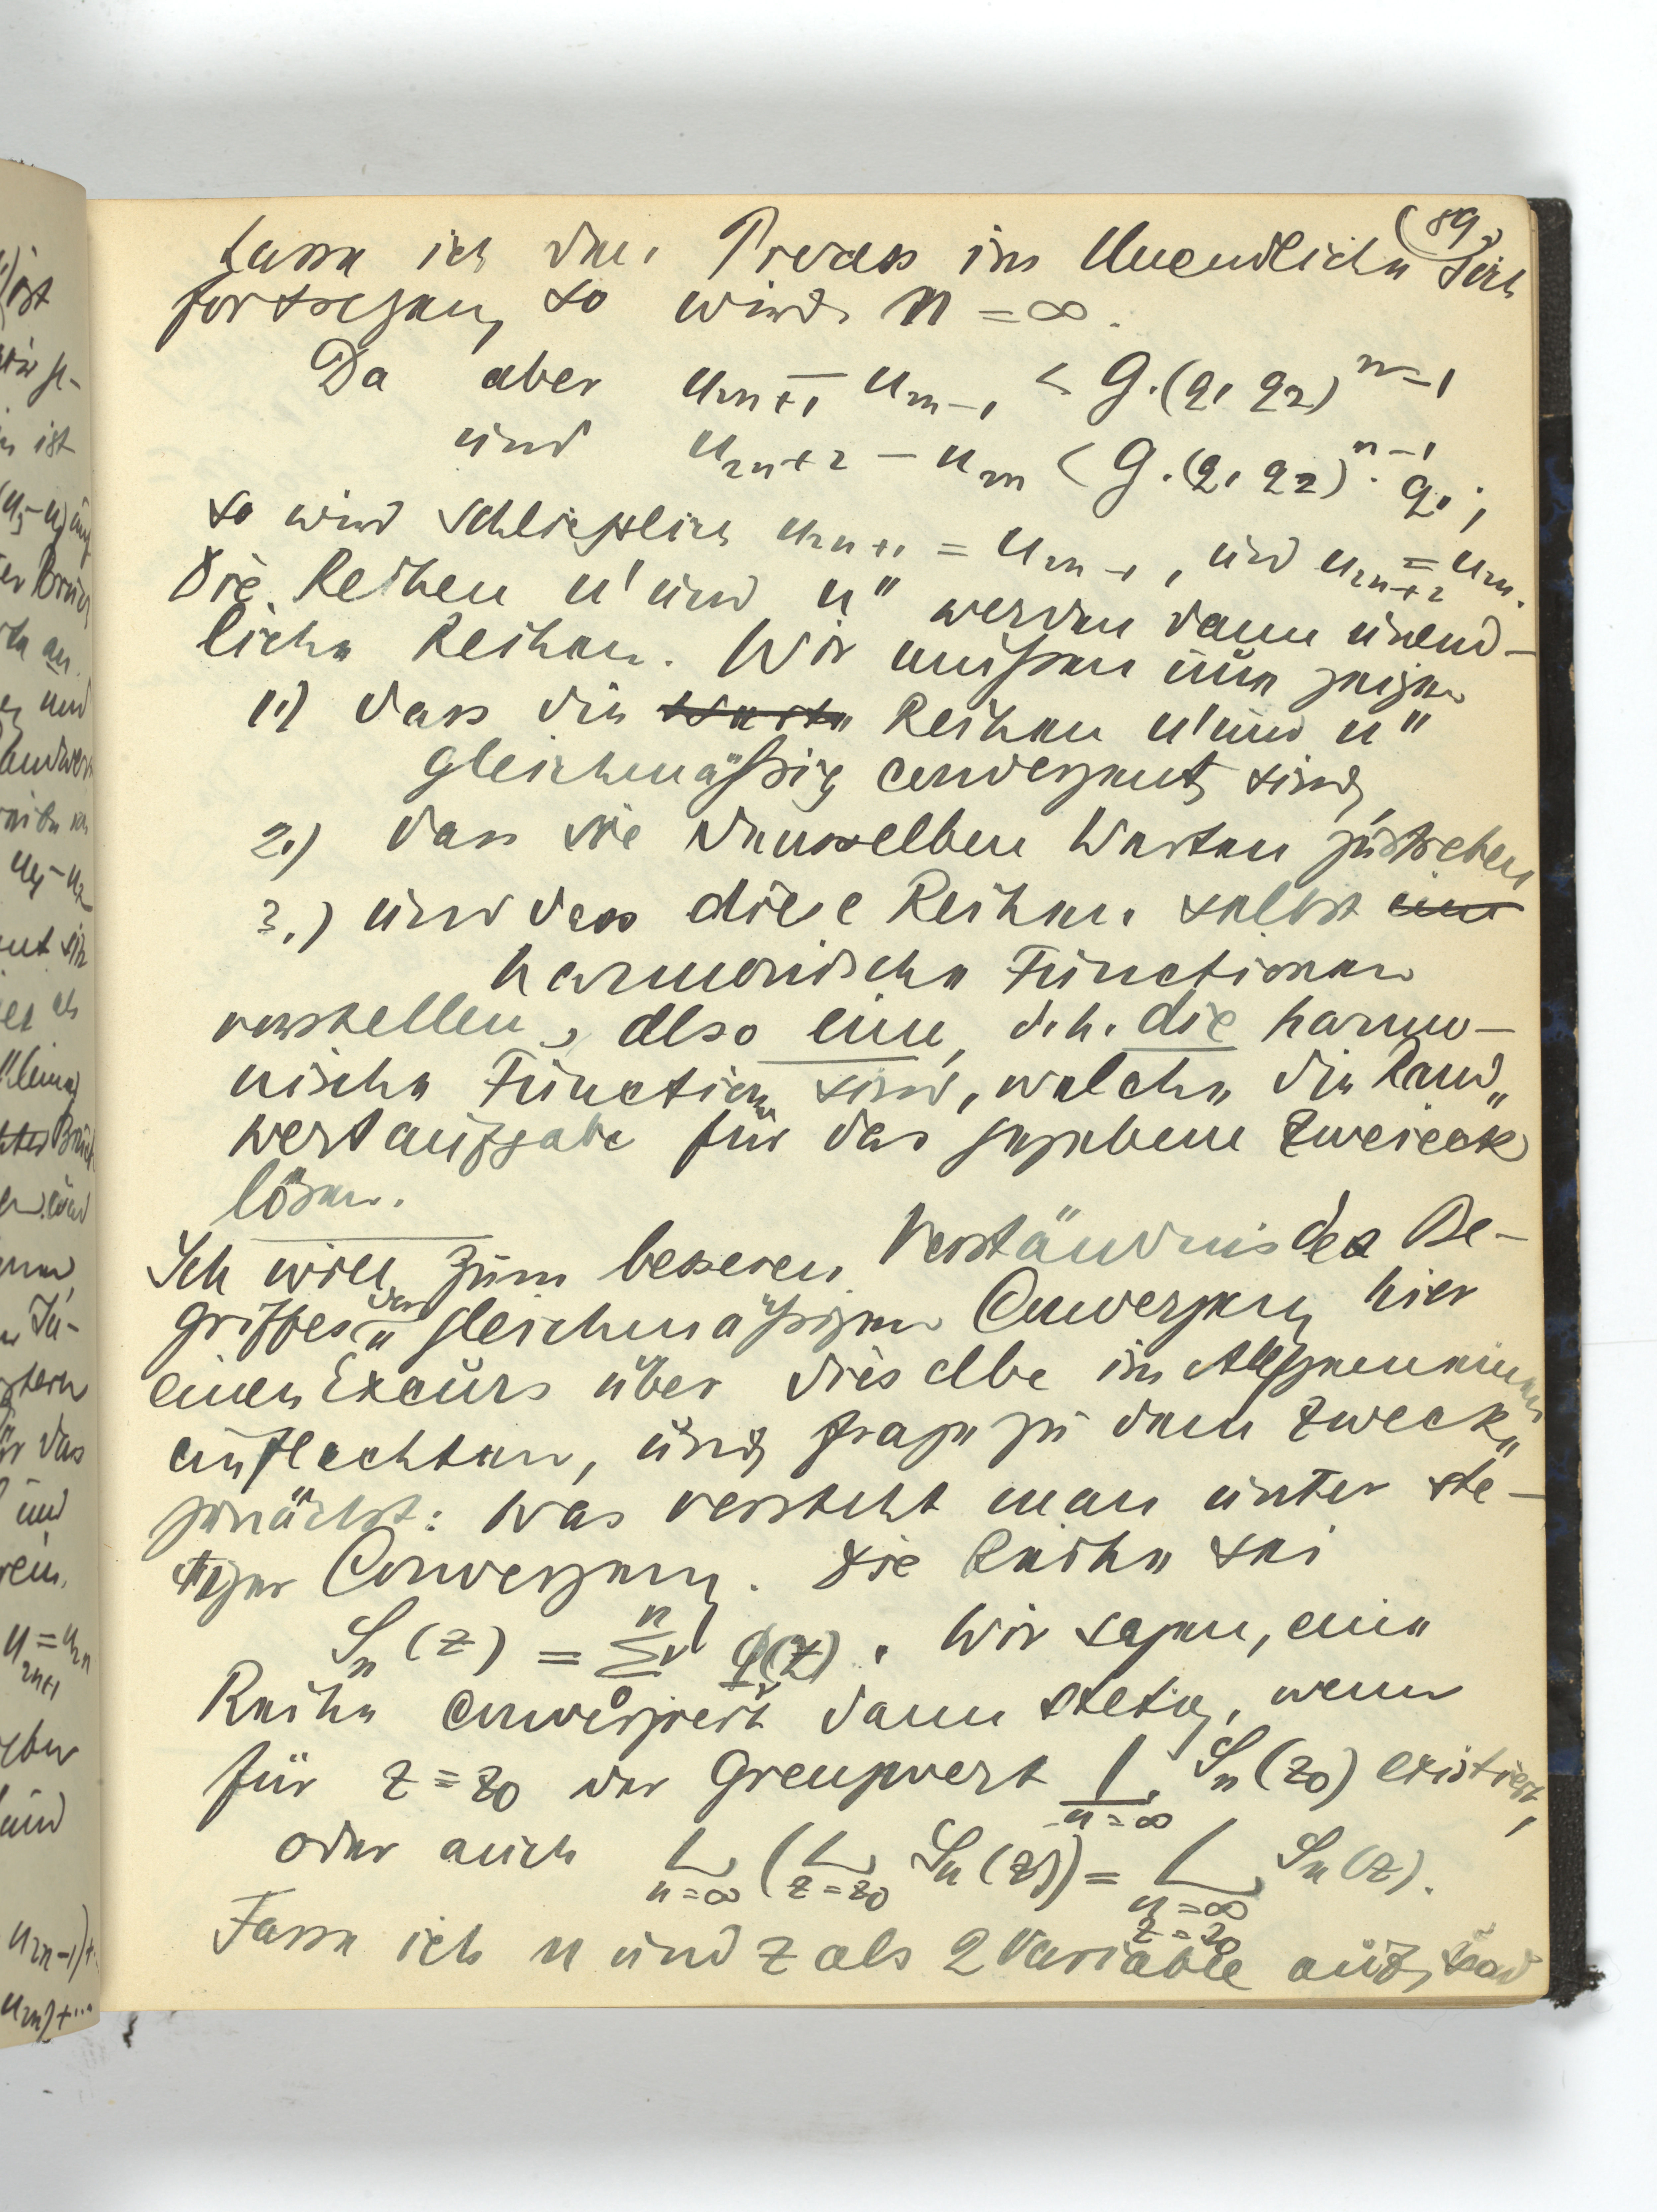 (89.
Lasse ich den Process ins Unendliche sich
fortsetzen, so wird n = ∞.
Da aber u₂ₙ₊₁ − u₂ₙ₋₁ < G.(q₁ q₂)ⁿ⁻¹
und u₂ₙ₊₂ − u₂ₙ < G.(q₁ q₂)ⁿ⁻¹. q₁;
so wird schliesslich u₂ₙ₊₁ = u₂ₙ₋₁, und u₂ₙ₊₂ = u₂ₙ.
Die Reihen u' und u" werden dann unend-
liche Reihen. Wir müssen nun zeigen
1.) dass die Reihen u' und u"
gleichmäßig convergent sind,
2.) dass sie denselben Werten zustreben
3.) und dass diese Reihen selbst
harmonische Functionen
vorstellen, also eine, d.h. die harmo-
nische Function sind, welche die Rand„
wertaufgabe für das gegebene Zweieck
lösen.
Ich will zum besseren Verständnis des Be-
griffes der gleichmäßigen Convergenz hier
einen Excurs über dieselbe im Allgemeinen
einflechten, und frage zu dem Zwecke
zunächst: Was versteht man unter ste-
tiger Convergenz. Die Reihe sei
Sₙ(z) = Σ₀ⁿ φᵥ(z). Wir sagen, eine
Reihe convergiert dann stetig, wenn
für z = z₀ der Grenzwert L n=∞ Sₙ(z₀) existiert,
oder auch L n=∞ (L z=z₀ Sₙ(z)) = L n=∞ z=z₀ Sₙ(z).
Fasse ich n und z als 2 Variable auf,